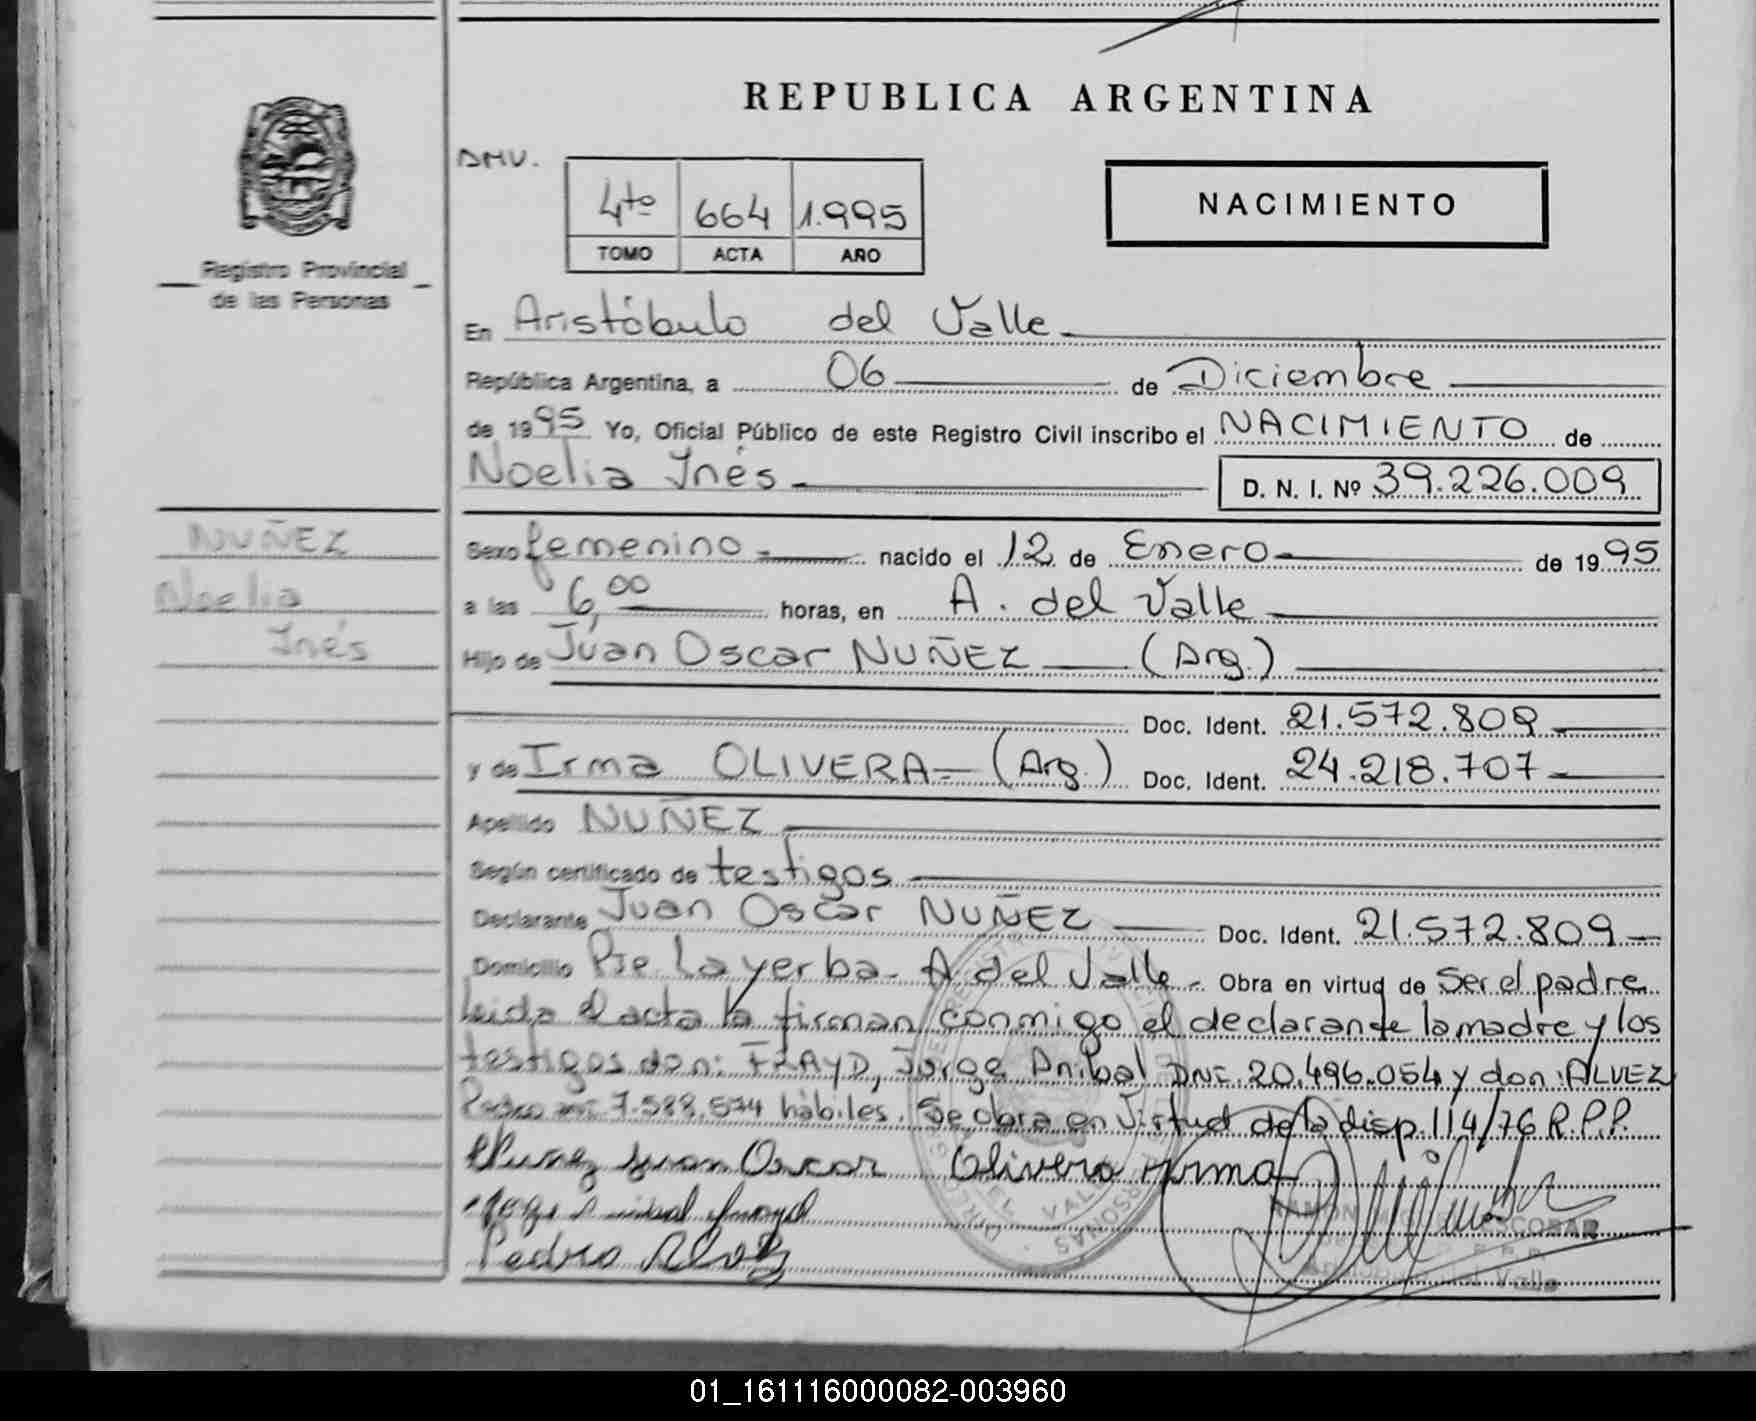 REPUBLICA ARGENTINA
DMV.
4to 664 1.995
TOMO ACTA AÑO
NACIMIENTO
Registro Provincial
de las Personas
En Aristóbulo del Valle
República Argentina, a 06 de Diciembre
de 1995 Yo, Oficial Público de este Registro Civil inscribo el NACIMIENTO de
Noelia Inés D. N. I. Nº 39.226.009
NUÑEZ
Noelia
Inés
Sexo femenino nacido el 12 de Enero de 1995
a las 6,00 horas, en A. del Valle
Hijo de Juan Oscar NUÑEZ (Arg.)
Doc. Ident. 21.572.809
y de Irma OLIVERA (Arg.) Doc. Ident. 24.218.707
Apellido NUÑEZ
Según certificado de testigos
Declarante Juan Oscar NUÑEZ Doc. Ident. 21.572.809
Domicilio Pje La yerba - A. del Valle - Obra en virtud de Ser el padre
leida el acta la firman conmigo el declarante la madre y los
testigos don: FRAYD, Jorge Anibal DNI. 20.496.054 y don: ALVEZ
Pedro 7.588.574 hábiles. Se obra en Virtud de la disp. 114/76 R.P.P.
Nuñez Juan Oscar Olivera Irma
Anibal
Pedro Alvez
RAMON ESCOBAR
R.P.P.
Aristóbulo del Valle
01_161116000082-003960